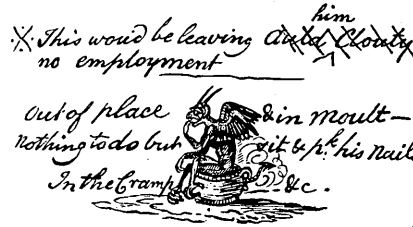 him
※ This wou'd be leaving Auld Clouty
no employment
Out of place & in moult—
Nothing to do but sit & p.k his Nails
In the Cramp &c.